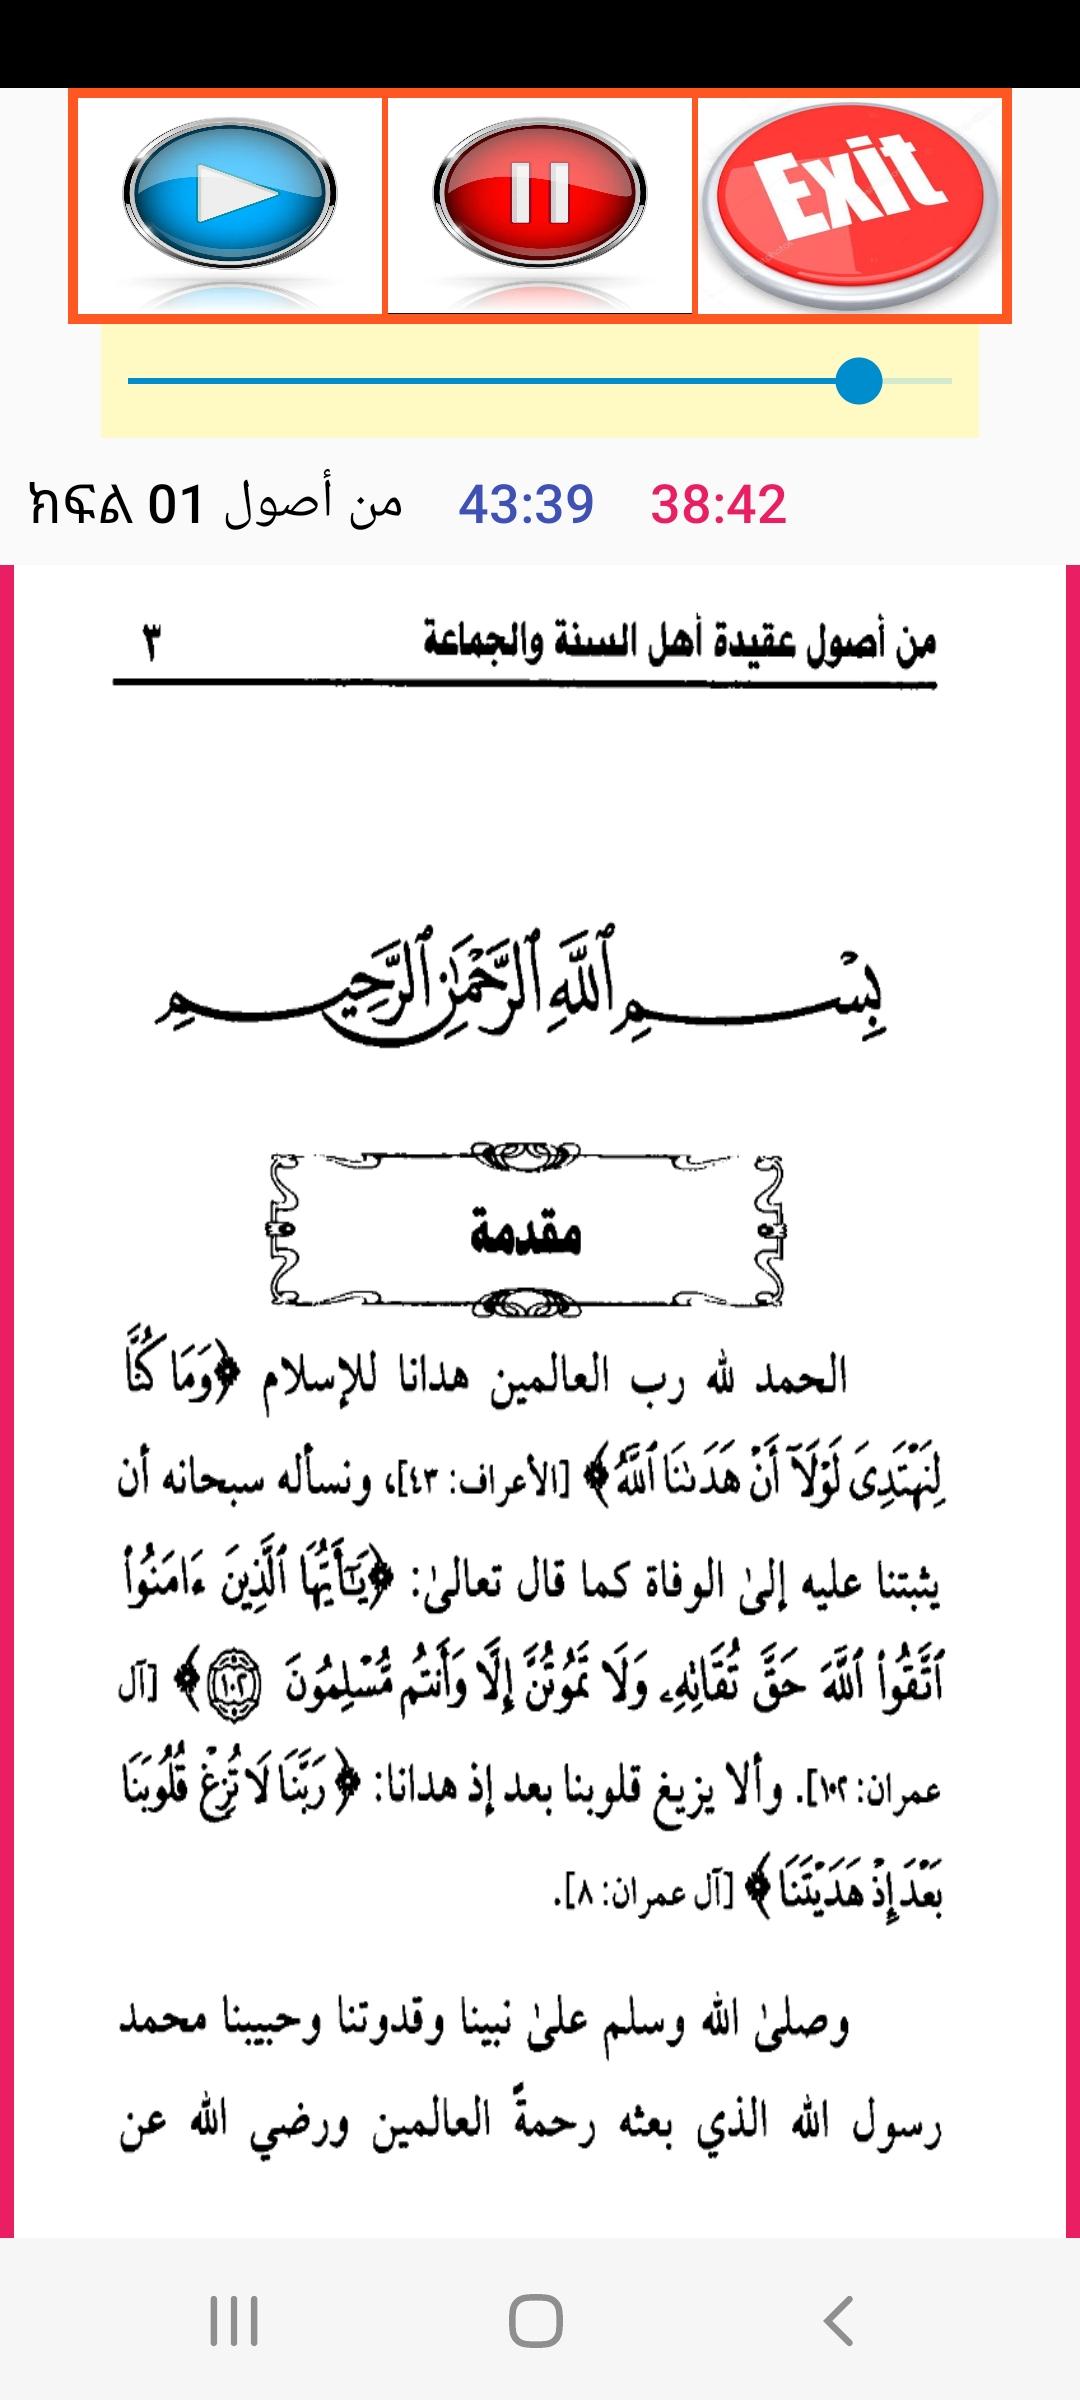 Exit
ክፍል 01 من أصول 43:39 38:42
من أصول عقيدة أهل السنة والجماعة ٣
بِسْمِ ٱللَّهِ ٱلرَّحْمَٰنِ ٱلرَّحِيمِ
مقدمة
الحمد لله رب العالمين هدانا للإسلام ﴿وَمَا كُنَّا
لِنَهْتَدِىَ لَوْلَآ أَنْ هَدَىٰنَا ٱللَّهُ﴾ [الأعراف: ٤٣]، ونسأله سبحانه أن
يثبتنا عليه إلىٰ الوفاة كما قال تعالىٰ: ﴿يَـٰٓأَيُّهَا ٱلَّذِينَ ءَامَنُوا۟
ٱتَّقُوا۟ ٱللَّهَ حَقَّ تُقَاتِهِۦ وَلَا تَمُوتُنَّ إِلَّا وَأَنتُم مُّسْلِمُونَ ١٠٢﴾ [آل
عمران: ١٠٢]. وألا يزيغ قلوبنا بعد إذ هدانا: ﴿رَبَّنَا لَا تُزِغْ قُلُوبَنَا
بَعْدَ إِذْ هَدَيْتَنَا﴾ [آل عمران: ٨].
وصلىٰ الله وسلم علىٰ نبينا وقدوتنا وحبيبنا محمد
رسول الله الذي بعثه رحمةً العالمين ورضي الله عن